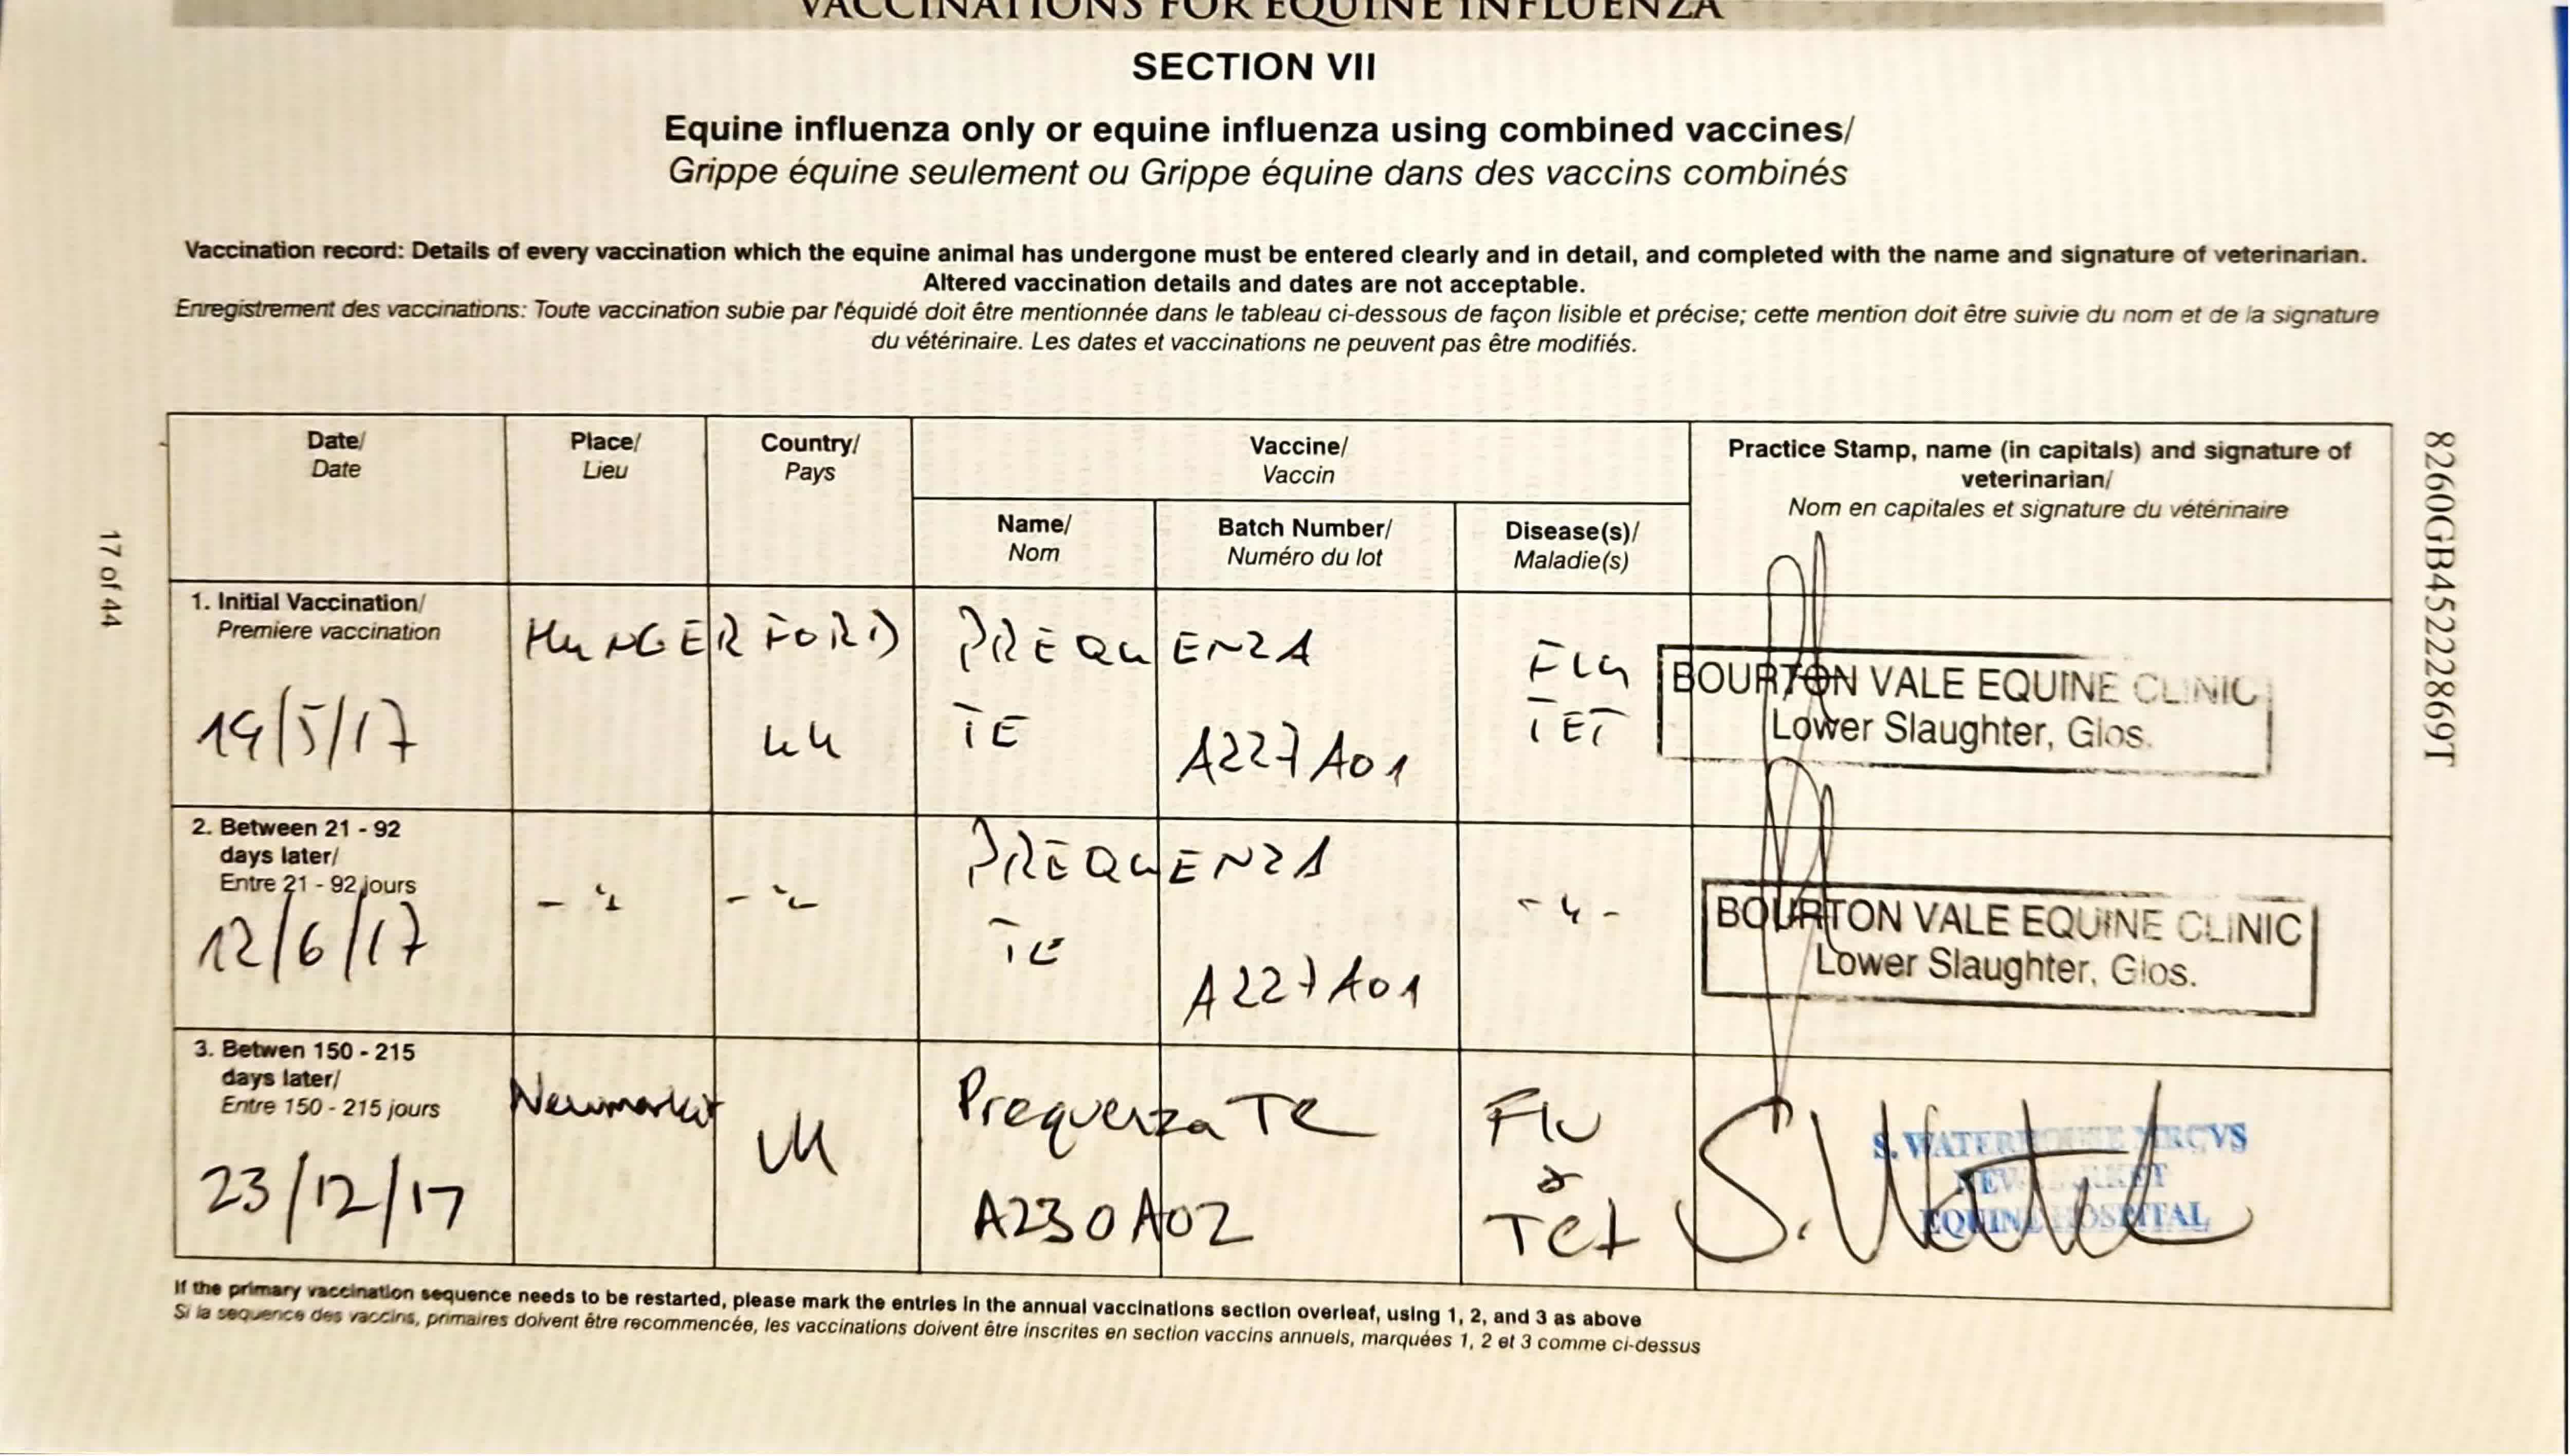 VACCINATIONS FOR EQUINE INFLUENZA
SECTION VII
Equine influenza only or equine influenza using combined vaccines/
Grippe équine seulement ou Grippe équine dans des vaccins combinés
Vaccination record: Details of every vaccination which the equine animal has undergone must be entered clearly and in detail, and completed with the name and signature of veterinarian.
Altered vaccination details and dates are not acceptable.
Enregistrement des vaccinations: Toute vaccination subie par l'équidé doit être mentionnée dans le tableau ci-dessous de façon lisible et précise; cette mention doit être suivie du nom et de la signature
du vétérinaire. Les dates et vaccinations ne peuvent pas être modifiés.
Date/
Date
Place/
Lieu
Country/
Pays
Vaccine/
Vaccin
Name/
Nom
Batch Number/
Numéro du lot
Disease(s)/
Maladie(s)
Practice Stamp, name (in capitals) and signature of
veterinarian/
Nom en capitales et signature du vétérinaire
1. Initial Vaccination/
Premiere vaccination
19/5/17
HUNGERFORD
UK
PREQUENZA
TE
A227A01
FLU
TET
BOURTON VALE EQUINE CLINIC
Lower Slaughter, Glos.
2. Between 21 - 92
days later/
Entre 21 - 92 jours
12/6/17
PREQUENZA
TE
A227A01
BOURTON VALE EQUINE CLINIC
Lower Slaughter, Glos.
3. Betwen 150 - 215
days later/
Entre 150 - 215 jours
23/12/17
Newmarket
UK
Prequenza TE
A230A02
Flu
&
Tet
S. WATERHOUSE MRCVS
NEWMARKET
EQUINE HOSPITAL
If the primary vaccination sequence needs to be restarted, please mark the entries in the annual vaccinations section overleaf, using 1, 2, and 3 as above
Si la sequence des vaccins, primaires doivent être recommencée, les vaccinations doivent être inscrites en section vaccins annuels, marquées 1, 2 et 3 comme ci-dessus
17 of 44
8260GB45222869T